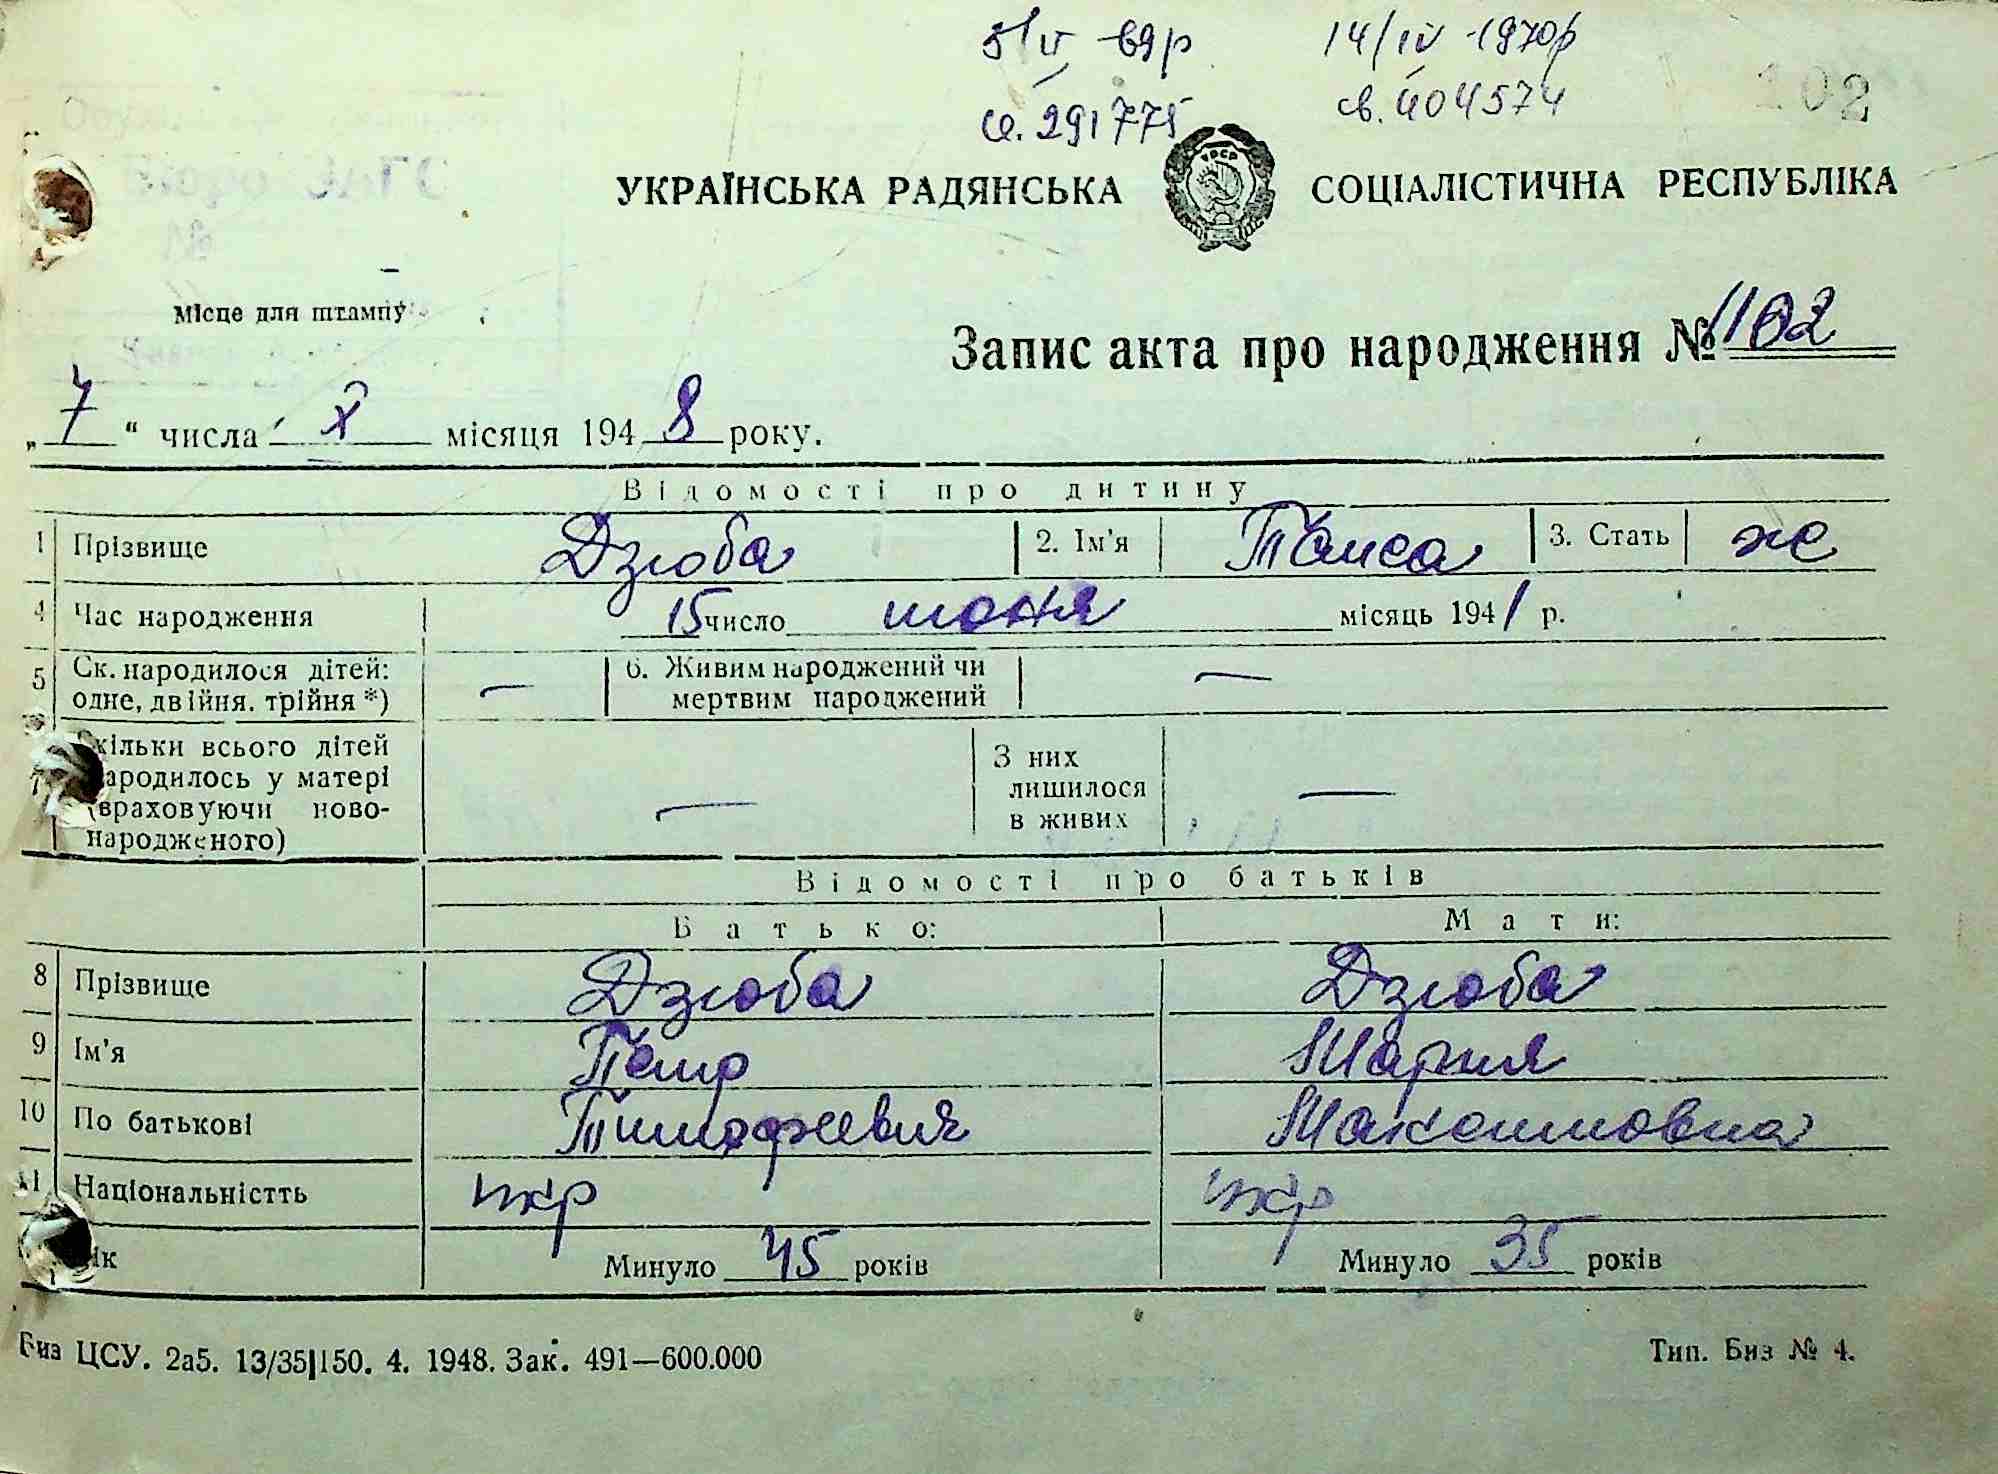 5/V -69р 14/IV -1970р
св. 291775 св. 404574 102
УКРАЇНСЬКА РАДЯНСЬКА СОЦІАЛІСТИЧНА РЕСПУБЛІКА
УРСР
Місце для штампу
Запис акта про народження № 1102
„7“ числа X місяця 1948 року.
Відомості про дитину
1 Прізвище Дзюба 2. Ім'я Таиса 3. Стать же
4 Час народження 15 число июня місяць 1941 р.
5 Ск. народилося дітей: — 6. Живим народжений чи —
одне, двійня, трійня *) мертвим народжений
7 Скільки всього дітей З них
народилось у матері — лишилося —
(враховуючи ново- в живих
народженого)
Відомості про батьків
Батько: Мати:
8 Прізвище Дзюба Дзюба
9 Ім'я Петр Мария
10 По батькові Тимофеевич Максимовна
11 Національністть укр укр
Вік Минуло 45 років Минуло 35 років
Биз ЦСУ. 2а5. 13/35|150. 4. 1948. Зак. 491—600.000 Тип. Биз № 4.